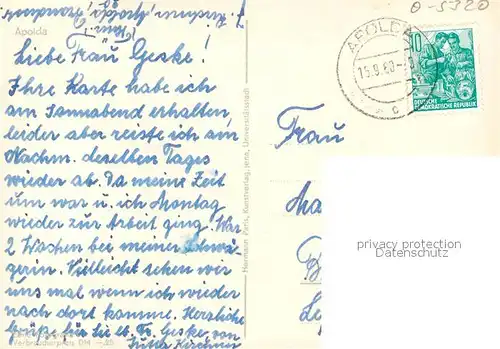 o-5320
Apolda
Liebe Frau Geske!
Ihre Karte habe ich
am Sonnabend erhalten,
leider aber reiste ich am
Nachm. desselben Tages
wieder ab. Da meine Zeit
um war u. ich Montag
wieder zur Arbeit ging. War
2 Wochen bei meiner Schwä-
gerin. Vielleicht sehen wir
uns mal wenn ich wieder
nach dort komme. Herzliche
Grüße für Sie lb. Fr. Geske von
Jutta
Verbraucherpreis DM -,25
Hermann Paris, Kunstverlag, Jena, Universitätsstadt
APOLDA
15.9.60
c
10
DEUTSCHE
DEMOKRATISCHE REPUBLIK
Frau
privacy protection
Datenschutz